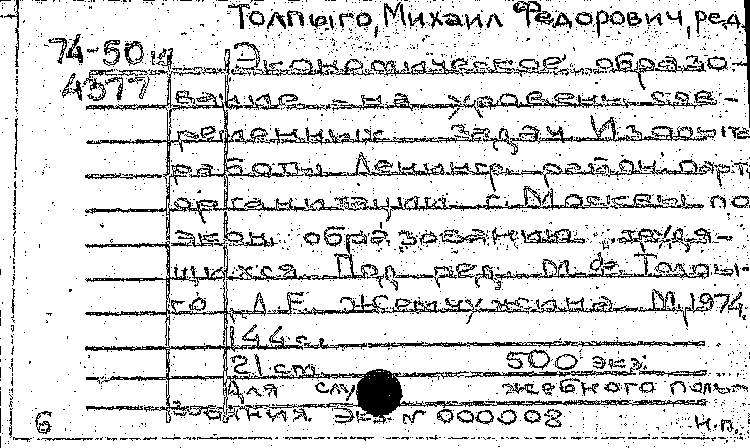 Толпыго, Михаил Федорович, ред.
74-50
4577
Экономическое образо-
вание - на уровень сов-
ременных задач Из опыта
работы Ленингр. район. парт.
организации г. Москвы по
экон. образованию трудя-
щихся. Под ред. М. Ф. Толпы-
го, Л. Г. Жемчужина М, 1974.
144 с.
21 см 500 экз.
Для служебного поль-
зования. Экз N 000008
6 н.п.